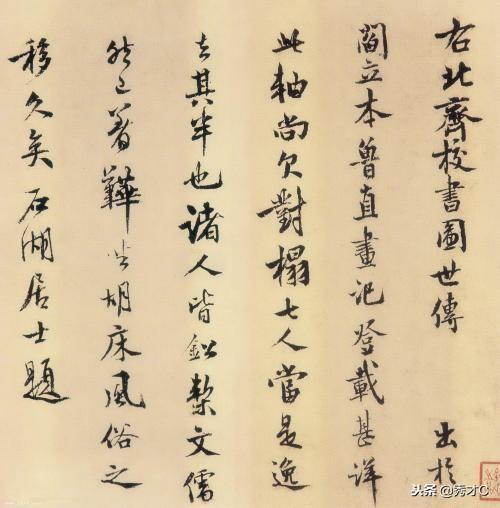 右北齊校書圖世傳 出於
閻立本魯直畫記登載甚詳
此軸尚欠對榻七人當是逸
去其半也諸人皆鉛槧文儒
然已著鞾坐胡床風俗之
移久矣石湖居士題
头条@秀才C